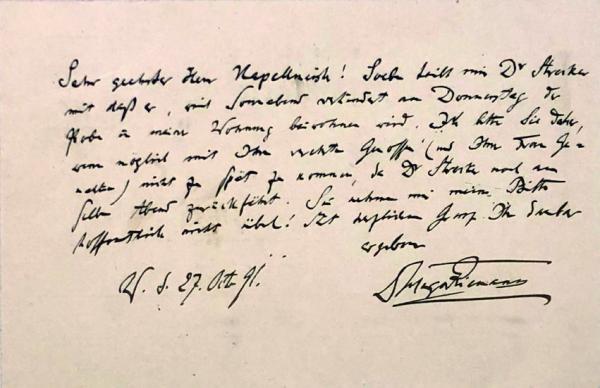 Sehr geehrter Herr Kapellmeister! Soeben teilt mir Dr Strecker
mit daß er, weil Sonnabend verhindert am Donnerstag der
Probe in meiner Wohnung beiwohnen wird. Ich bitte Sie daher,
wenn möglich mit Ihren Genossen (und Ihrer Frau Ge-
) nicht zu spät zu kommen, da Dr Strecker noch am
selben Abend zurückfährt. Sie nehmen mir meine Bitte
hoffentlich nicht übel! Mit Ihr
ergebener
W. d. 27. Okt. 91.
Dr Hugo Riemann